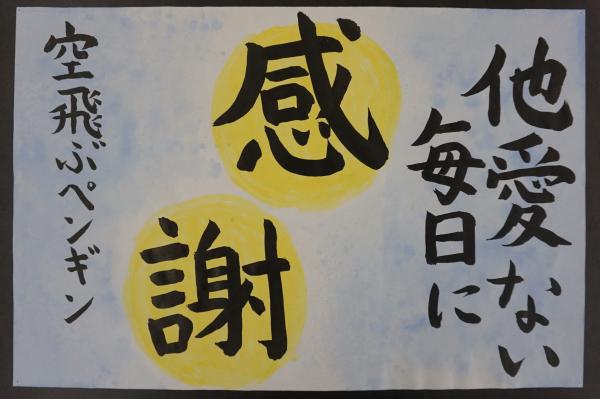 他愛ない
毎日に
感謝
空飛ぶペンギン